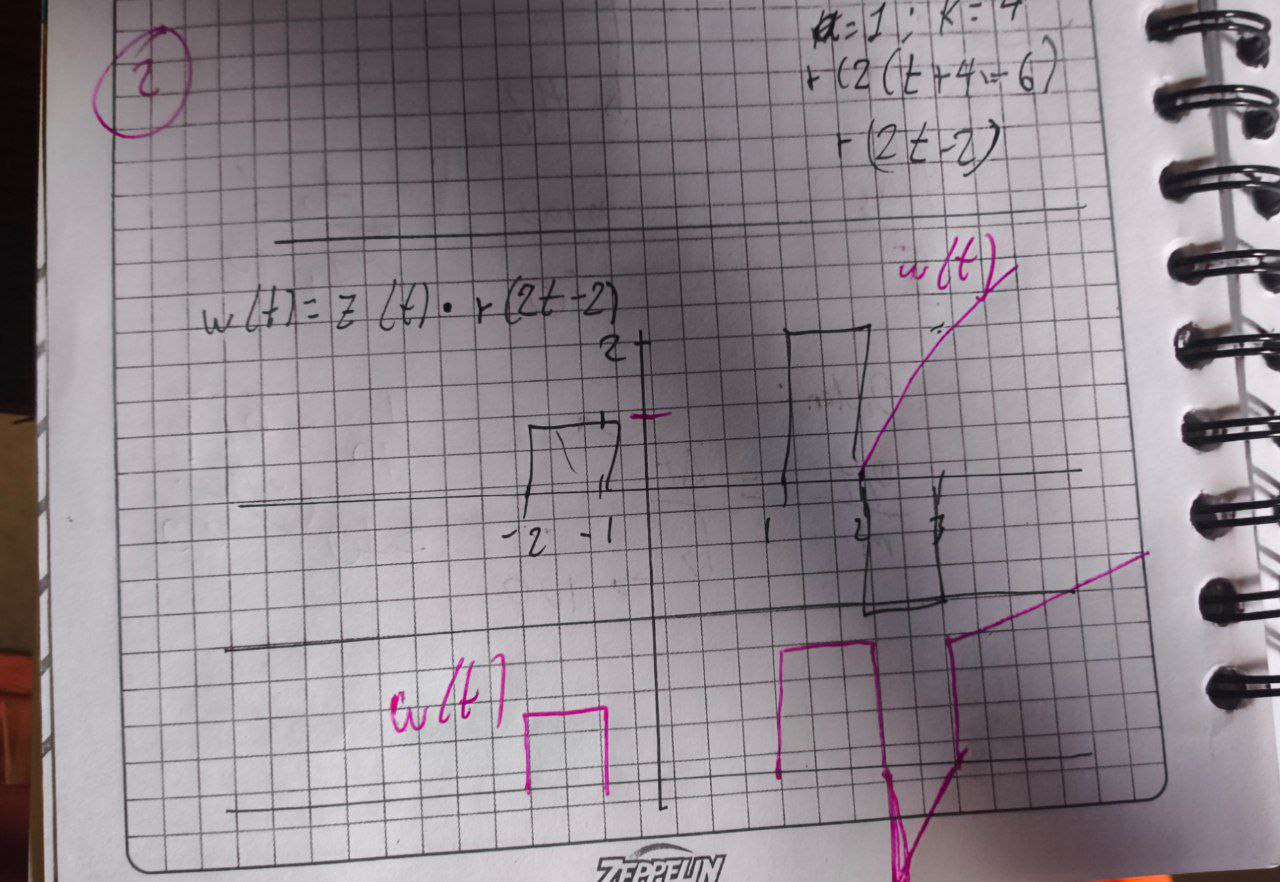 2
a=1; k=4
r(2(t+4-6)
r(2t-2)
w(t)
w(t)=z(t)·r(2t-2)
2
-2 -1 1 2 3
w(t)
ZEPPELIN